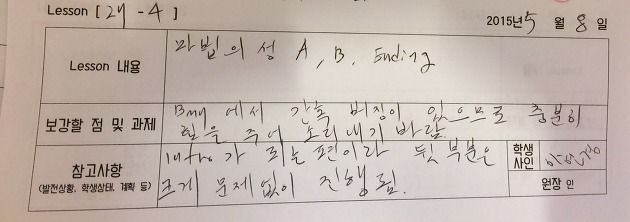 Lesson [ 24 - 4 ]
2015년 5 월 8 일
Lesson 내용
마법의 성 A, B, Ending
보강할 점 및 과제
Bm7 에서 간혹 버징이 있으므로 충분히
힘을 주어 소리내기 바람.
참고사항
(발전상황, 학생상태, 계획 등)
intro가 되는편이라 뒷부분은
크게 문제없이 진행 됨.
학생
사인
원장 인